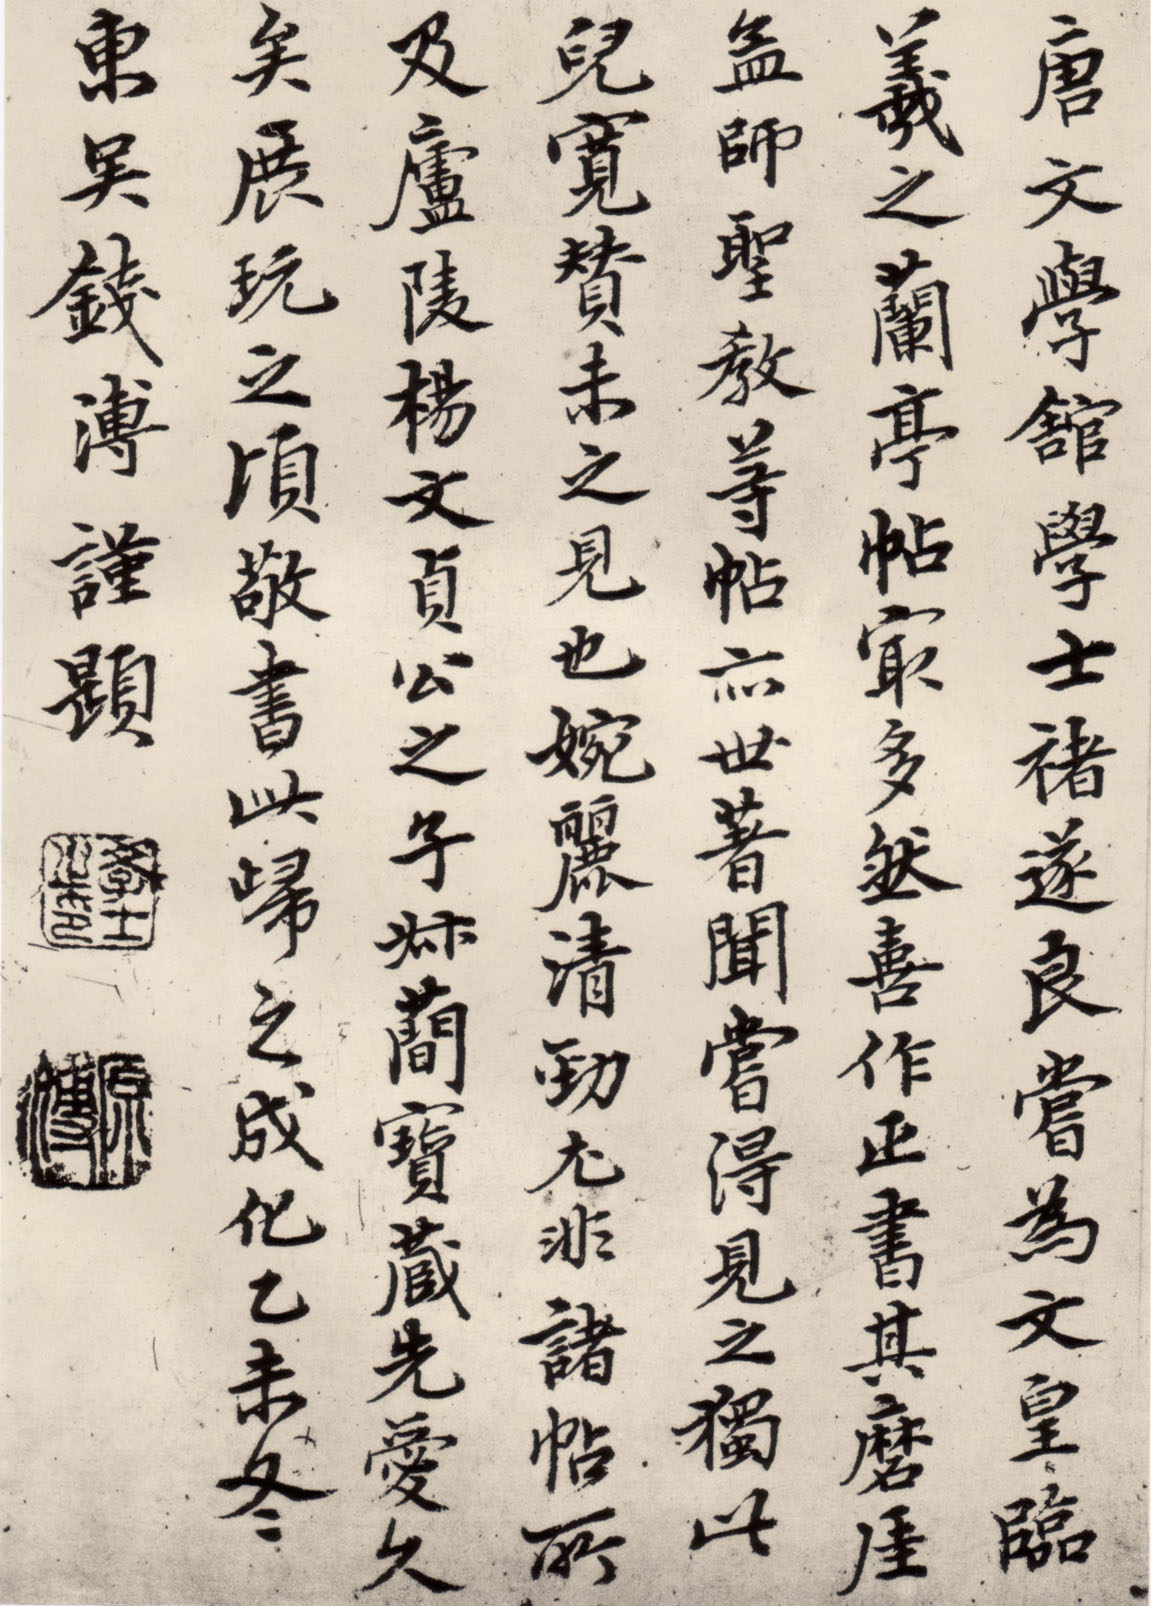 唐文學舘學士褚遂良嘗為文皇臨
羲之蘭亭帖冣多然喜作正書其磨崖
孟師聖教等帖亦世著聞嘗得見之獨此
兒寬賛未之見也婉麗清勁尤非諸帖所
及廬陵楊文貞公之子叔簡寶藏先愛久
矣展玩之頃敬書此歸之成化乙未冬
東吴錢溥謹題
學士
原溥